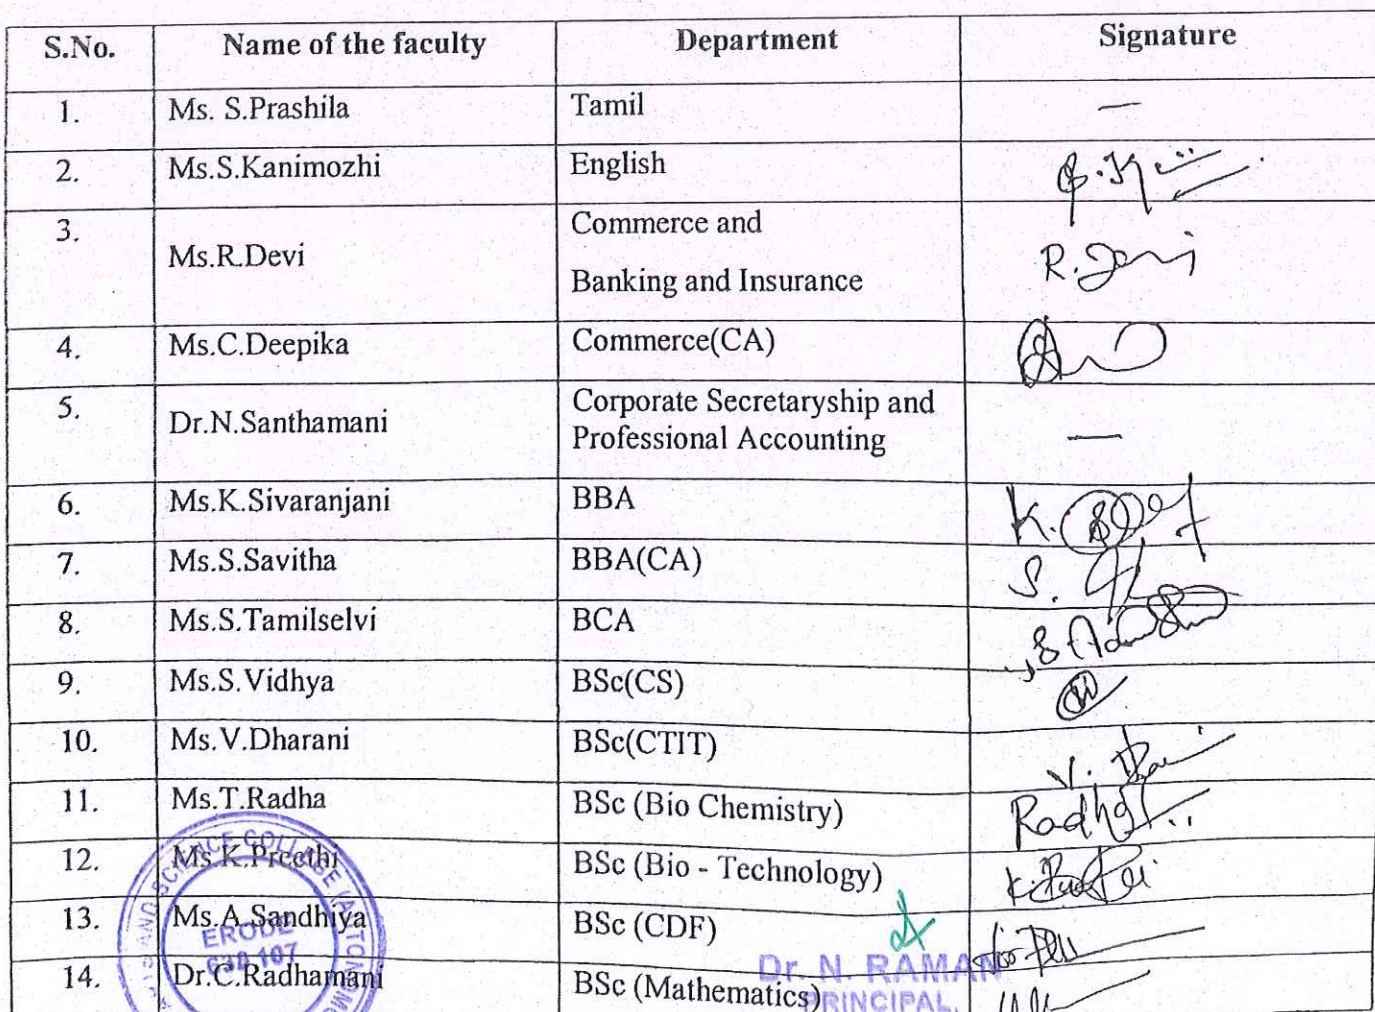 S.No. Name of the faculty Department Signature
1. Ms. S.Prashila Tamil —
2. Ms.S.Kanimozhi English
3. Ms.R.Devi Commerce and
Banking and Insurance R. Devi
4. Ms.C.Deepika Commerce(CA)
5. Dr.N.Santhamani Corporate Secretaryship and
Professional Accounting —
6. Ms.K.Sivaranjani BBA K.
7. Ms.S.Savitha BBA(CA) S.
8. Ms.S.Tamilselvi BCA
9. Ms.S.Vidhya BSc(CS)
10. Ms.V.Dharani BSc(CTIT) V.
11. Ms.T.Radha BSc (Bio Chemistry) Radha
12. Ms.K.Preethi BSc (Bio - Technology) K.
13. Ms.A.Sandhiya BSc (CDF)
14. Dr.C.Radhamani BSc (Mathematics)
AND SCIENCE COLLEGE (AUTONOMO
ERODE
638 107
Dr. N. RAMAN
PRINCIPAL,